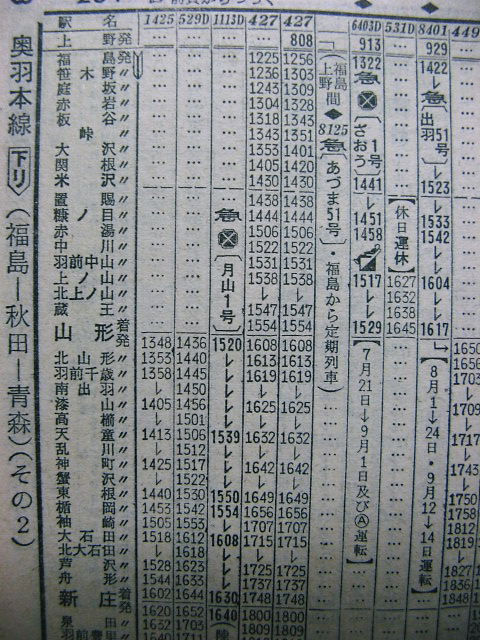 奥羽本線 下り (福島―秋田―青森) (その2)
駅名 1425 529D 1113D 427 427 6403D 531D 8401 449
上野発 … … … … 808 913 … 929
福島〃 … … … 1225 1256 1322 … 1422
笹木野〃 … … … 1236 1303
庭坂〃 … … … 1243 1309
赤岩〃 … … … 1304 1328
板谷〃 … … … 1318 1343
峠〃 … … … 1343 1351
大沢〃 … … … 1353 1401
関根〃 … … … 1405 1420
米沢〃 … … … 1430 1430 1441 … 1523
置賜〃 … … 1438 1438 ↓ ↓
糠ノ目〃 … … 1444 1444 1451 1533
赤湯〃 … … 1506 1506 1458 1542
中川〃 … … 1522 1522
羽前中山〃 … … 1531 1531
上ノ山〃 … … 1538 1538 1517 1627 1604
北上ノ山〃 … … ↓ ↓ 1632
蔵王〃 … … 1547 1547 1638
山形着 … … 1554 1554 1529 1645 1617
発 1348 1436 1520 1608 1608
北山形〃 1353 1440 ↓ 1613 1613 1650
羽前千歳〃 1358 1445 ↓ 1619 1619
南出羽〃 ↓ 1450 ↓ ↓ ↓ 1703
漆山〃 1405 1456 ↓ 1625 1625 1709
高擶〃 ↓ 1501 ↓ ↓ ↓
天童〃 1413 1506 1539 1632 1632 1717
乱川〃 ↓ 1512 ↓ ↓ ↓
神町〃 1425 1517 ↓ 1642 1642 1743
蟹沢〃 ↓ 1522 ↓ ↓ ↓
東根〃 1440 1530 1550 1649 1649 1750
楯岡〃 1453 1542 1554 1656 1656 1758
袖崎〃 1505 1553 ↓ 1707 1707 1812
大石田〃 1518 1612 1608 1715 1715 1819
北大石田〃 ↓ 1618 ↓ ↓ ↓ ↓
芦沢〃 1528 1623 ↓ 1725 1725 1827
舟形〃 1544 1633 ↓ 1737 1737
新庄着 1602 1644 1630 1748 1748 1848
発 1620 1652 1640 1800 1800
泉田〃 1632 1703 1809 1809
急 (月山1号)
(福島上野間◆8125急(あづま51号)・福島から定期列車)
急 ざおう1号
(7月21日→9月1日及びⒶ運転)
【休日運休】
急 出羽51号
【8月1→24日・9月12→14日運転】